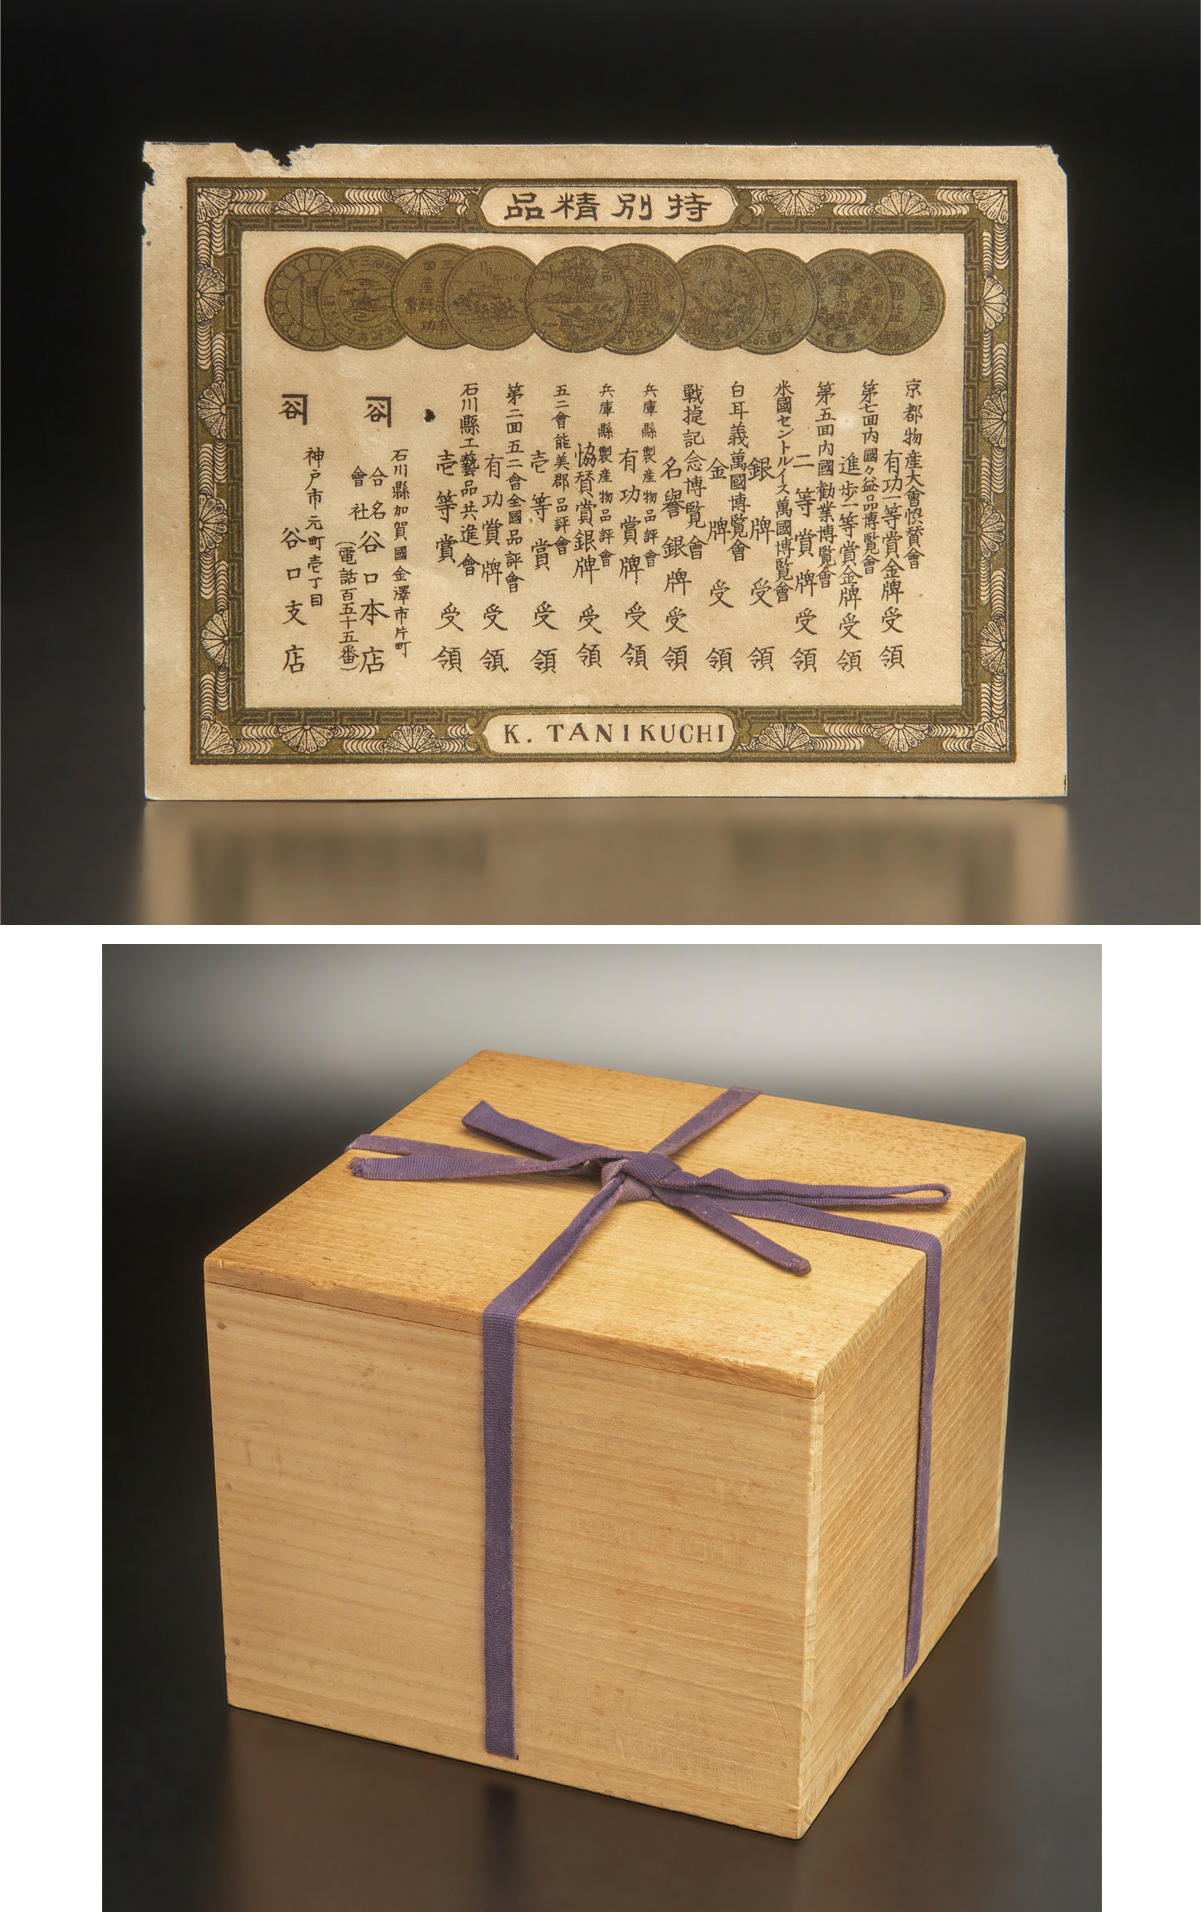 特別精品
京都物産大會懷賛會
有功一等賞金牌受領
第七回内國々益品博覧會
進歩一等賞金牌受領
第五回内國勧業博覧會
二等賞牌受領
米國セントルイス萬國博覧會
銀牌受領
白耳義萬國博覧會
金牌受領
戰捷記念博覧會
名譽銀牌受領
兵庫縣製産物品評會
有功賞牌受領
兵庫縣製産物品評會
協賛賞銀牌受領
五二會能美郡品評會
壱等賞受領
第二回五二會全國品評會
有功賞牌受領
石川縣工藝品共進會
壱等賞受領
石川縣加賀國金澤市片町
合名會社谷口本店
(電話百五十五番)
神戸市元町壱丁目
谷口支店
K. TANIKUCHI